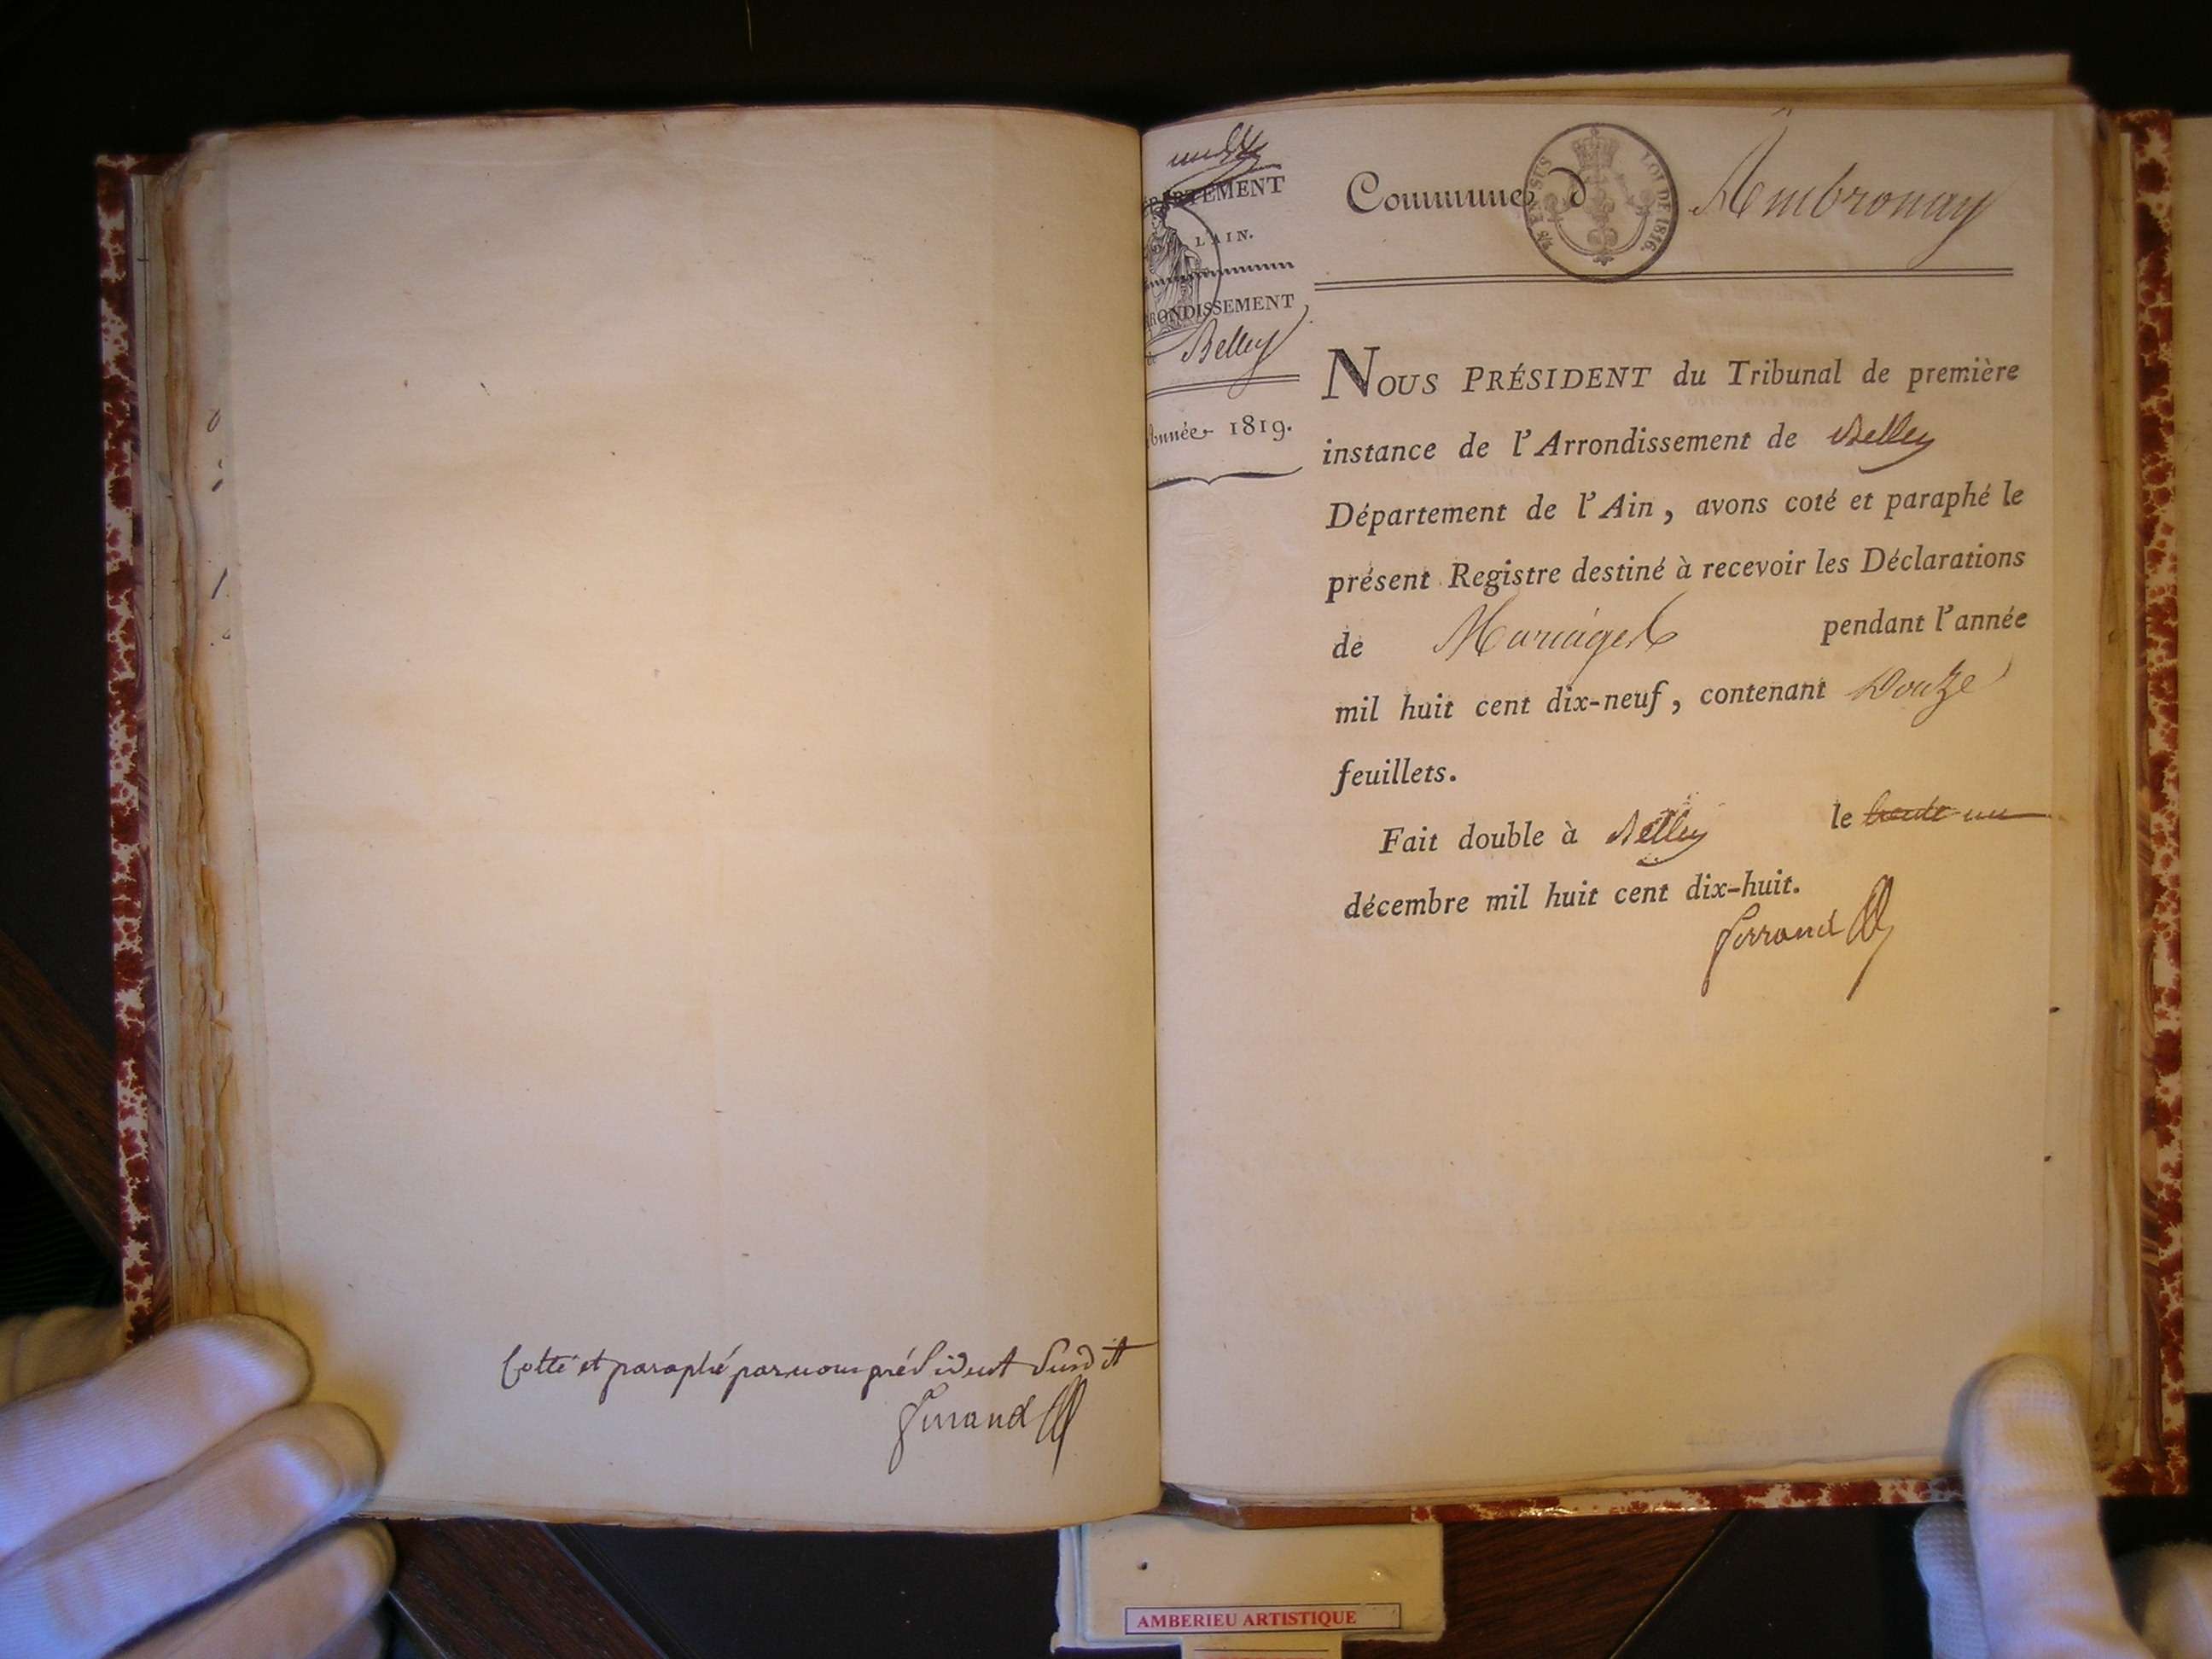 Cotté et paraphé par nous président Susdit
Ferrand
DÉPARTEMENT
DE L'AIN.
ARRONDISSEMENT
de Belley
Année 1819.
Commune d'Ambronay
1/8 EN SUS
LOI DE 1816.
NOUS PRÉSIDENT du Tribunal de première
instance de l'Arrondissement de Belley
Département de l'Ain, avons coté et paraphé le
présent Registre destiné à recevoir les Déclarations
de Mariages pendant l'année
mil huit cent dix-neuf, contenant Douze
feuillets.
Fait double à Belley le trente un
décembre mil huit cent dix-huit.
Ferrand
AMBERIEU ARTISTIQUE